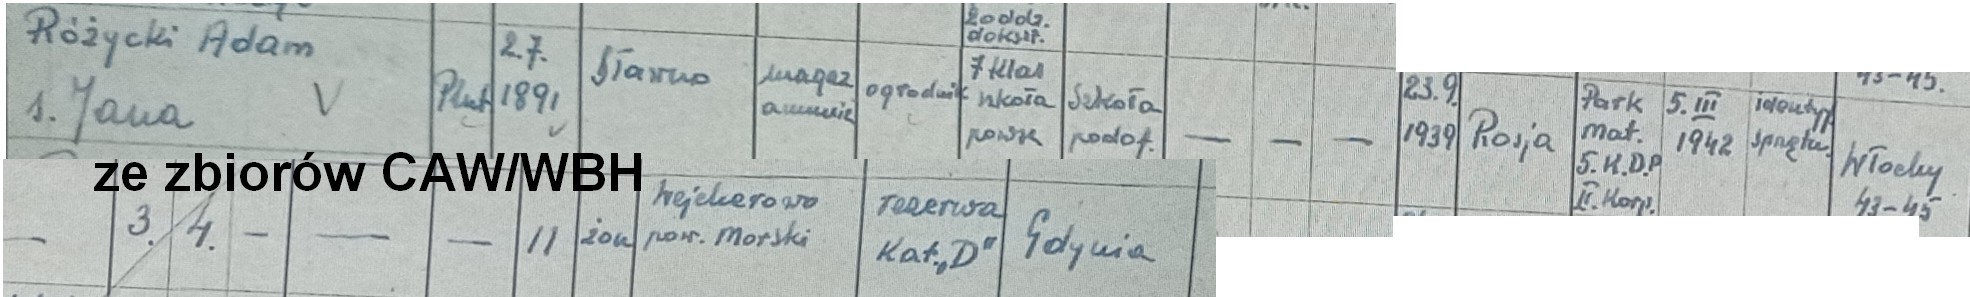 Różycki Adam
s. Jana V
Plut
2.7.
1891
Sławno
magaz
amunic
ogrodnik
2 oddz.
dokszt.
7 klas
szkoła
powsz
Szkoła
podof.
— — —
23.9.
1939
Rosja
Park
mat.
5.K.D.P
II. Korp.
5. III
1942
identyf
sprzętu.
43-45.
Włochy
43-45
ze zbiorów CAW/WBH
— 3. 4. — — — 11 żon
Wejcherowo
pow. Morski
rezerwa
Kat. „D"
Gdynia